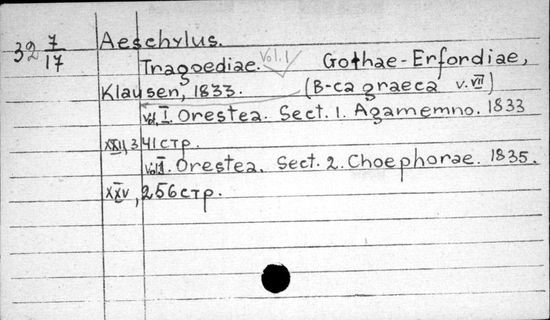 32 7/17 Aeschylus.
Tragoediae. Vol. 1 Gothae-Erfordiae,
Klausen, 1833. (B-ca graeca v. VII)
Vol. I. Orestea. Sect. 1. Agamemno. 1833
XXII, 341 стр.
Vol. II. Orestea. Sect. 2. Choephorae. 1835.
XXV, 256 стр.